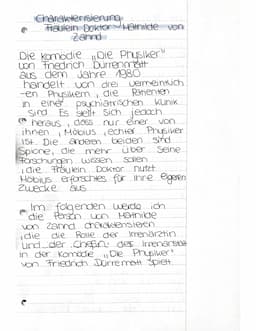 Charakterisierung
Fräulein Doktor Mathilde von
Zahnd
Die Komödie „Die Physiker"
von Friedrich Dürrenmatt
aus dem Jahre 1980
handelt von drei vermeintlich
-en Physikern, die Patienten
in einer psychiatrischen Klinik
sind. Es stellt sich jedoch
heraus, dass nur einer von
ihnen, Möbius, echter Physiker
ist. Die anderen beiden sind
Spione, die mehr über seine
Forschungen wissen sollen
, die Fräulein Doktor nutzt
Möbius erforschtes für ihre eigenen
Zwecke aus.
Im folgenden werde ich
die Person von Mathilde
von Zahnd charakterisieren
, die die Rolle der Irrenärztin
und der Chefin des Irrenanstalt
in der Komödie „Die Physiker"
von Friedrich Dürrematt spielt.